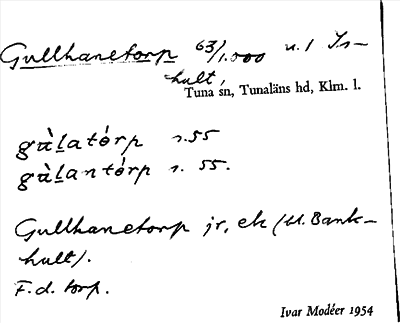 Gullhanetorp 63/1.000 u. I Is-
hult,
Tuna sn, Tunaläns hd, Klm. l.
gàḷatórp s. 55
gàḷantórp s. 55.
Gullhanetorp jr, ek (U. Bank-
hult).
F.d. torp.
Ivar Modéer 1954